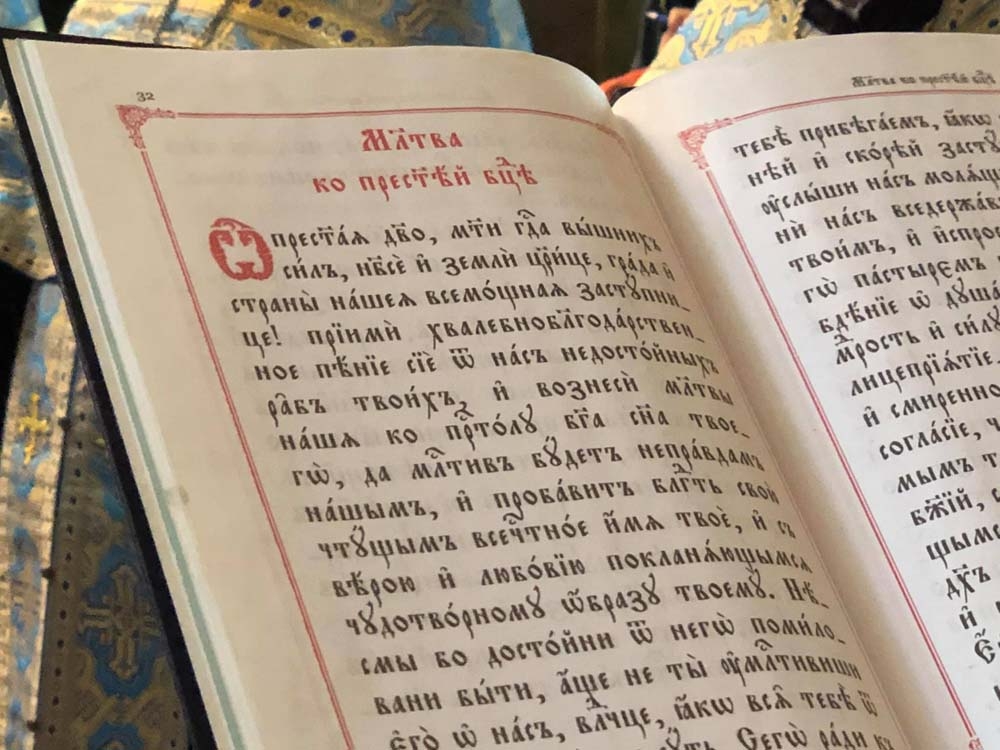 32
Мл҃тва
ко прест҃ѣй бц҃ѣ
Ѽ прест҃а́ѧ дв҃о, мт҃и гдⷭ҇а вы́шнихъ
си́лъ, нб҃сѐ и҆ землѝ цр҃и́це, гра́да и҆
страны̀ на́шеѧ всемо́щнаѧ застꙋ́пни-
це! прїимѝ хвалебноблⷢ҇ода́рствен-
ное пѣ́нїе сїѐ ѿ на́съ недосто́йныхъ
ра̑бъ твои́хъ, и҆ вознесѝ мл҃твы
на́шѧ ко прⷭ҇то́лꙋ бг҃а сн҃а твое-
гѡ̀, да млⷭ҇тивъ бꙋ́детъ непра́вдамъ
на́шымъ, и҆ проба́витъ блгⷣть свою̀
чтꙋ́щымъ всечⷭ҇тно́е и҆́мѧ твоѐ, и҆ съ
вѣ́рою и҆ любо́вїю покланѧ́ющымсѧ
чꙋдотво́рномꙋ ѡ҆́бразꙋ твоемꙋ̀. Нѣ́-
смы бо досто́йни ѿ негѡ̀ поми́ло-
вани бы́ти, а҆́ще не ты̀ ᲂу҆млⷭ҇тивиши
є҆го̀ ѡ҆ на́съ, влⷣчце, ꙗ҆́кѡ всѧ̑ тебѣ̀ ѿ
Сегѡ̀ ра́ди къ
Мл҃тва ко прест҃ѣй бц҃ѣ
тебѣ̀ прибѣга́емъ, ꙗ҆́кѡ
не́й и҆ ско́рѣй
ᲂу҆слы́ши на́съ
ни́ на́съ
твои́мъ, и҆
гѡ̀ па́стыремъ
бдѣ́нїе ѡ҆
мⷣрость и҆ си́лꙋ
лицепрїѧ́тїе
и҆
согла́сїе,
мымъ
бж҃їй,
дх҃ъ
и҆